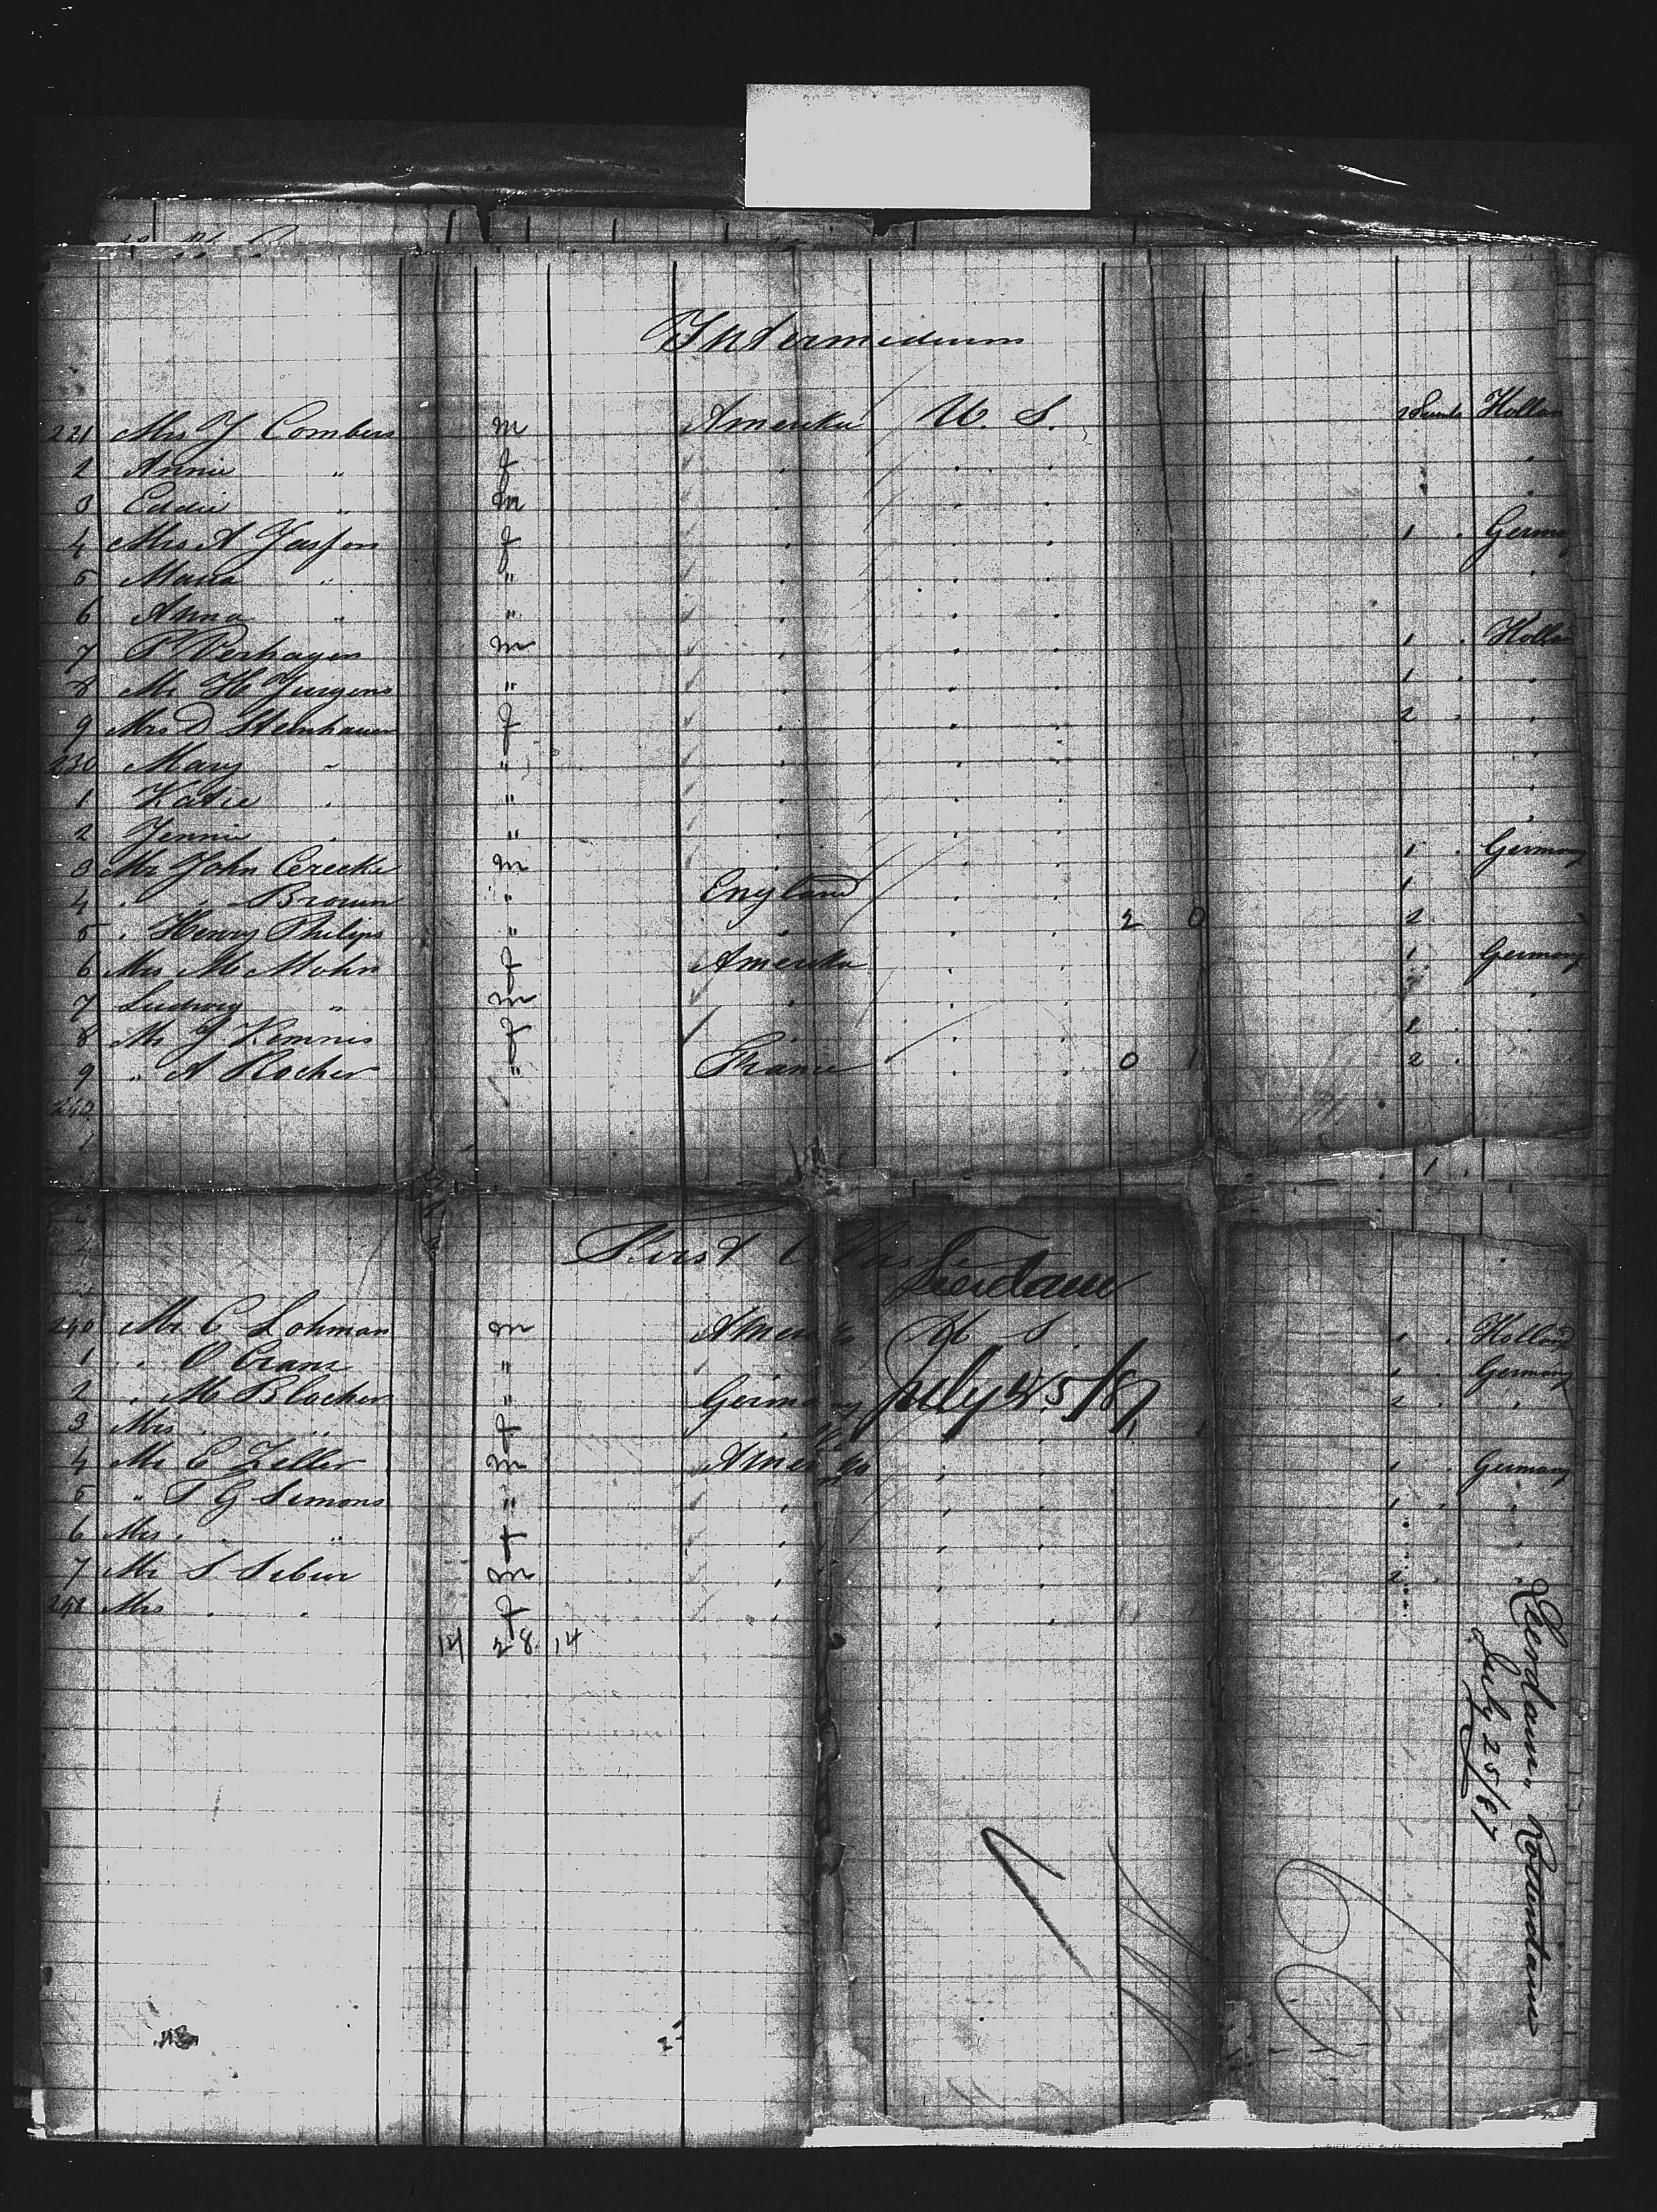 Intermedium
221 Mrs J Combers m Amerika U. S. 2 Trunks Hollan
2 Annie " f . . . .
3 Eddie " m . . . .
4 Mrs A Jasson f . . . 1 . Germ
5 Maria " " . . . .
6 Anna " " . . .
7 P Verhagen m . . . 1 . Hollan
8 Mr H Jurgens " . . . 1 . .
9 Mrs D Steinhauer f . . . 2 . .
230 Mary " " . . . .
1 Katie . " . . . .
2 Jennie . " . . . .
3 Mr John Cerecke m . . . 1 . Germany
4 . . Brown " England . . 1
5 . Henry Philips " . . . 2 0 2
6 Mrs M Mohn f Amerika . . 1 Germany
7 Ludwig " m . . . .
8 Mr J Kemnis f . . 1 .
9 " A Rocher " France . . 0 1 2 .
240
1
First Class
Leerdam
240 Mr C Lohman m Amerika U S 1 . Holland
1 . O Crans " 1 . Germany
2 . M Blocher " Germany July 25/87 2 . "
3 Mrs . " f . . .
4 Mr E Zeller m Amerika . . 1 . Germany
5 " T G Simons " . . . 1 . "
6 Mrs . " f . . . "
7 Mr S Sibur m . . . 2 . .
248 Mrs . . f . . .
14 28 14
Leerdam. Rotterdam
July 25/87